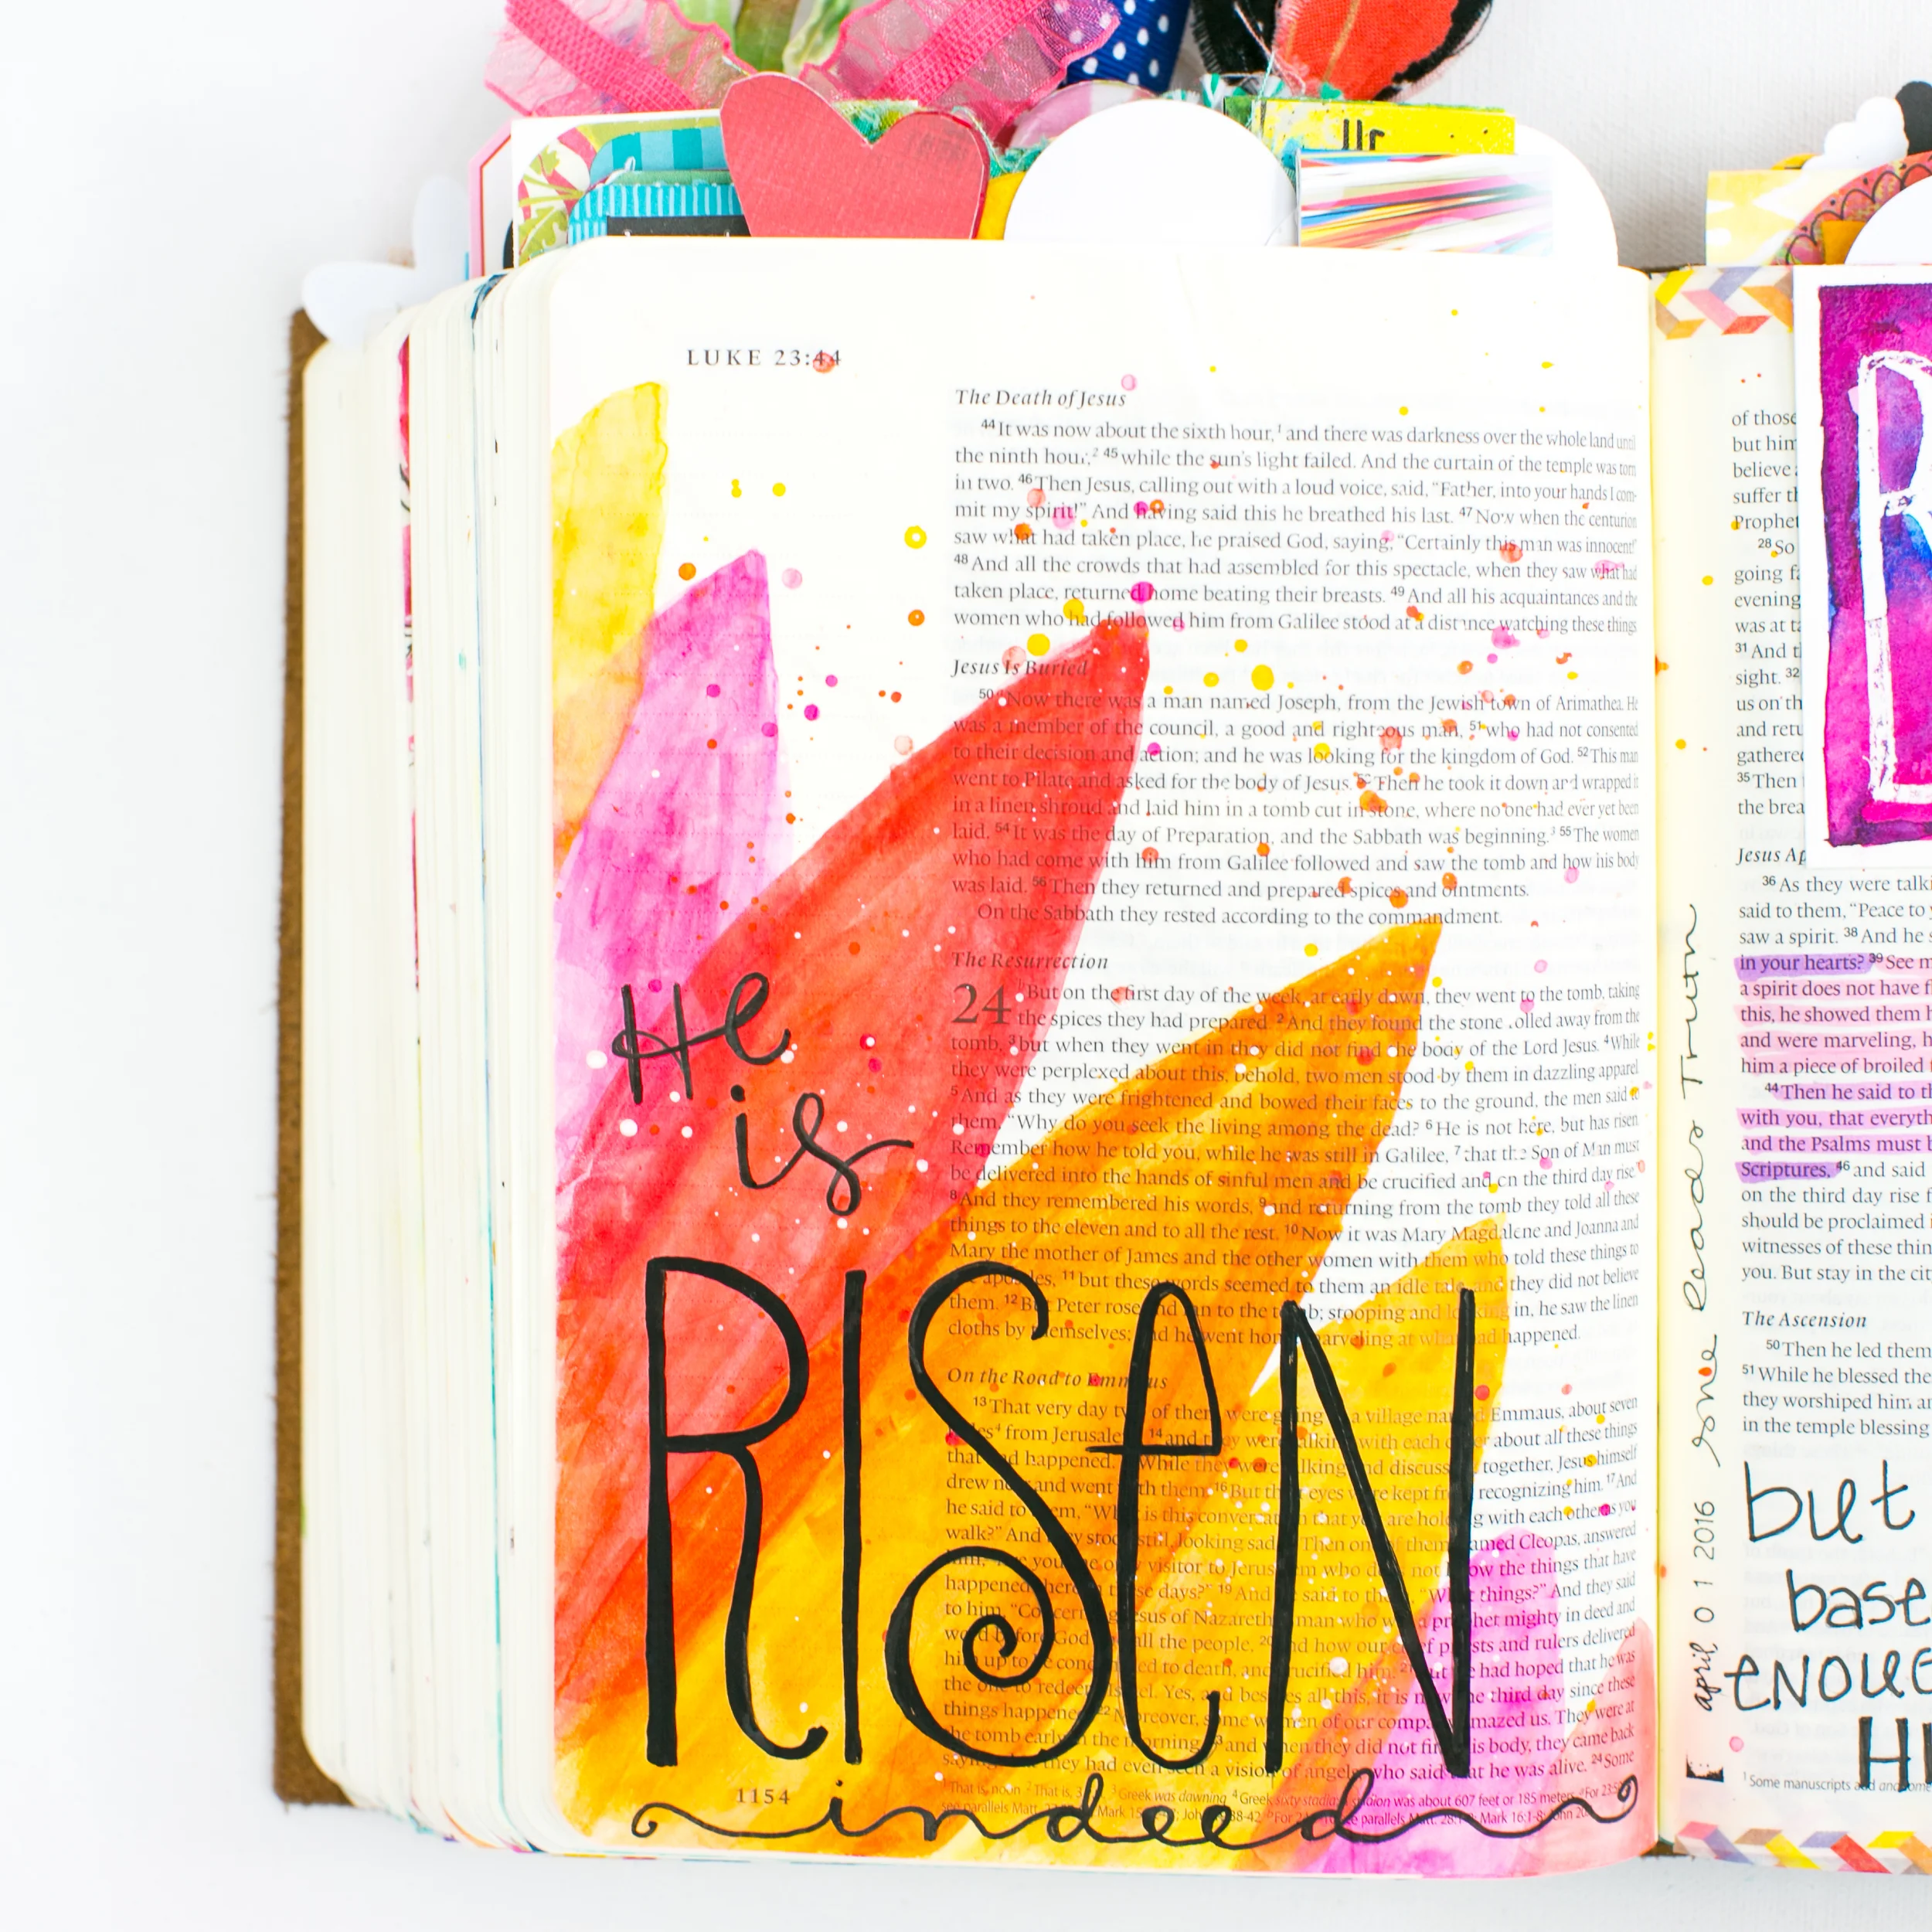 LUKE 23:44
The Death of Jesus
44 It was now about the sixth hour,1 and there was darkness over the whole land until
the ninth hour,2 45 while the sun's light failed. And the curtain of the temple was torn
in two. 46 Then Jesus, calling out with a loud voice, said, “Father, into your hands I com-
mit my spirit!” And having said this he breathed his last. 47 Now when the centurion
saw what had taken place, he praised God, saying, “Certainly this man was innocent!”
48 And all the crowds that had assembled for this spectacle, when they saw what had
taken place, returned home beating their breasts. 49 And all his acquaintances and the
women who had followed him from Galilee stood at a distance watching these things
Jesus Is Buried
50 Now there was a man named Joseph, from the Jewish town of Arimathea. He
was a member of the council, a good and righteous man, 51 who had not consented
to their decision and action; and he was looking for the kingdom of God. 52 This man
went to Pilate and asked for the body of Jesus. 53 Then he took it down and wrapped it
in a linen shroud and laid him in a tomb cut in stone, where no one had ever yet been
laid. 54 It was the day of Preparation, and the Sabbath was beginning.3 55 The women
who had come with him from Galilee followed and saw the tomb and how his body
was laid. 56 Then they returned and prepared spices and ointments.
On the Sabbath they rested according to the commandment.
The Resurrection
24 But on the first day of the week, at early dawn, they went to the tomb, taking
the spices they had prepared. 2 And they found the stone rolled away from the
tomb, 3 but when they went in they did not find the body of the Lord Jesus. 4 While
they were perplexed about this, behold, two men stood by them in dazzling apparel
5 And as they were frightened and bowed their faces to the ground, the men said to
them, “Why do you seek the living among the dead? 6 He is not here, but has risen
Remember how he told you, while he was still in Galilee, 7 that the Son of Man must
be delivered into the hands of sinful men and be crucified and on the third day rise”
8 And they remembered his words, 9 and returning from the tomb they told all these
things to the eleven and to all the rest. 10 Now it was Mary Magdalene and Joanna and
Mary the mother of James and the other women with them who told these things to
the apostles, 11 but these words seemed to them an idle tale, and they did not believe
them. 12 But Peter rose and ran to the tomb; stooping and looking in, he saw the linen
cloths by themselves; and he went home marveling at what had happened.
On the Road to Emmaus
13 That very day two of them were going to a village named Emmaus, about seven
miles4 from Jerusalem, 14 and they were talking with each other about all these things
that had happened. While they were talking and discussing together, Jesus himself
drew near and went with them. 16 But their eyes were kept from recognizing him. 17 And
he said to them, “What is this conversation that you are holding with each other as you
walk?” And they stood still, looking sad. Then one of them, named Cleopas, answered
him, “Are you the only visitor to Jerusalem who does not know the things that have
happened there in these days?” 19 And he said to them, “What things?” And they said
to him, “Concerning Jesus of Nazareth, a man who was a prophet mighty in deed and
word before God and all the people, 20 and how our chief priests and rulers delivered
him up to be condemned to death, and crucified him. 21 But we had hoped that he was
the one to redeem Israel. Yes, and besides all this, it is now the third day since these
things happened. 22 Moreover, some women of our company amazed us. They were at
the tomb early in the morning, 23 and when they did not find his body, they came back
saying that they had even seen a vision of angels, who said that he was alive. 24 Some
He
is
RISEN
indeed
1154
1 That is, noon 2 That is, 3 3 Greek was dawning 4 Greek sixty stadia; stadion was about 607 feet or 185 meters
see parallels Matt. Mark 15 John 38-42 parallels Matt. 28:1 Mark 16:1-8; John 20
april 01 2016 some Read Truth
of those
but him
believe
suffer
Prophet
28 So
going
evening
was at
31 And
sight. 32
us on th
and retu
gathered
35 Then
the brea
R
Jesus Ap
36 As they were talki
said to them, “Peace to
saw a spirit. 38 And he s
in your hearts? 39 See m
a spirit does not have fl
this, he showed them h
and were marveling, h
him a piece of broiled
44 Then he said to th
with you, that everyth
and the Psalms must b
Scriptures, 46 and said
on the third day rise f
should be proclaimed i
witnesses of these thin
you. But stay in the cit
The Ascension
50 Then he led them
51 While he blessed the
they worshiped him an
in the temple blessing
but
base
ENOUG
HI
1 Some manuscripts add and